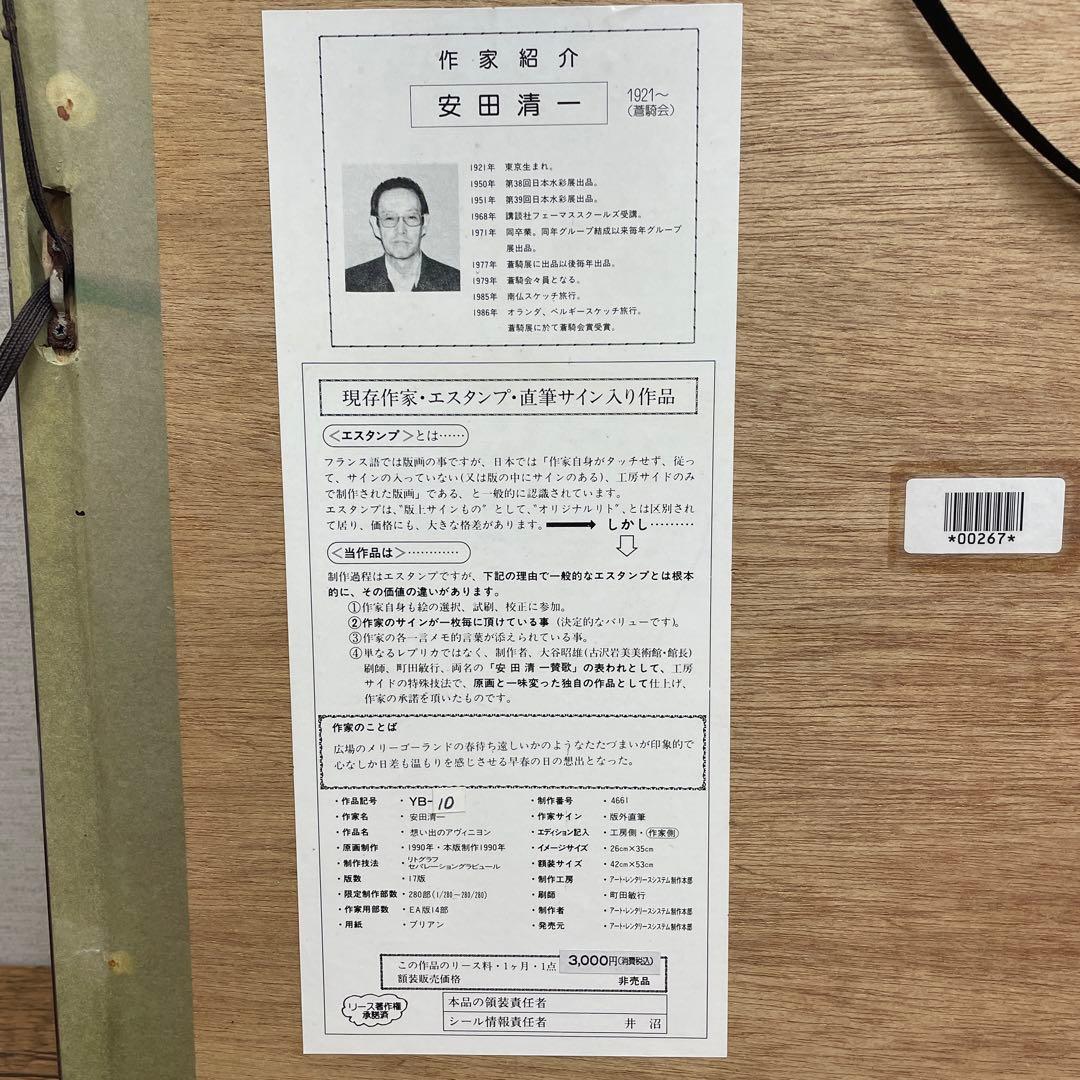 作家紹介
安田清一
1921～
(蒼騎会)
1921年 東京生まれ。
1950年 第38回日本水彩展出品。
1951年 第39回日本水彩展出品。
1968年 講談社フェーマススクールズ受講。
1971年 同卒業。同年グループ結成以来毎年グループ
展出品。
1977年 蒼騎展に出品以後毎年出品。
1979年 蒼騎会々員となる。
1985年 南仏スケッチ旅行。
1986年 オランダ、ベルギースケッチ旅行。
蒼騎展に於て蒼騎会賞受賞。
現存作家・エスタンプ・直筆サイン入り作品
＜エスタンプ＞とは……
フランス語では版画の事ですが、日本では「作家自身がタッチせず、従っ
て、サインの入っていない(又は版の中にサインのある)、工房サイドのみ
で制作された版画」である、と一般的に認識されています。
エスタンプは、“版上サインもの”として、“オリジナルリト”、とは区別され
て居り、価格にも、大きな格差があります。→ しかし………
＜当作品は＞…………
制作過程はエスタンプですが、下記の理由で一般的なエスタンプとは根本
的に、その価値の違いがあります。
①作家自身も絵の選択、試刷、校正に参加。
②作家のサインが一枚毎に頂けている事(決定的なバリューです)。
③作家の各一言メモ的言葉が添えられている事。
④単なるレプリカではなく、制作者、大谷昭雄(古沢岩美美術館・館長)
刷師、町田敏行、両名の「安田清一賛歌」の表われとして、工房
サイドの特殊技法で、原画と一味変った独自の作品として仕上げ、
作家の承諾を頂いたものです。
作家のことば
広場のメリーゴーランドの春待ち遠しいかのようなたたづまいが印象的で
心なしか日差も温もりを感じさせる早春の日の想出となった。
・作品記号 ・YB-10 ・制作番号 ・4661
・作家名 ・安田清一 ・作家サイン ・版外直筆
・作品名 ・想い出のアヴィニヨン ・エディション記入 ・工房側・作家側
・原画制作 ・1990年・本版制作1990年 ・イメージサイズ ・26cm×35cm
・制作技法 ・リトグラフ セパレーショングラビュール ・額装サイズ ・42cm×53cm
・版数 ・17版 ・制作工房 ・アート・レンタリースシステム制作本部
・限定制作部数 ・280部(1/280～280/280) ・刷師 ・町田敏行
・作家用部数 ・EA版14部 ・制作者 ・アート・レンタリースシステム制作本部
・用紙 ・ブリアン ・発売元 ・アート・レンタリースシステム制作本部
この作品のリース料・1ヶ月・1点 3,000円(消費税込)
額装販売価格 非売品
リース著作権
承諾済
本品の額装責任者
シール情報責任者 井沼
*00267*